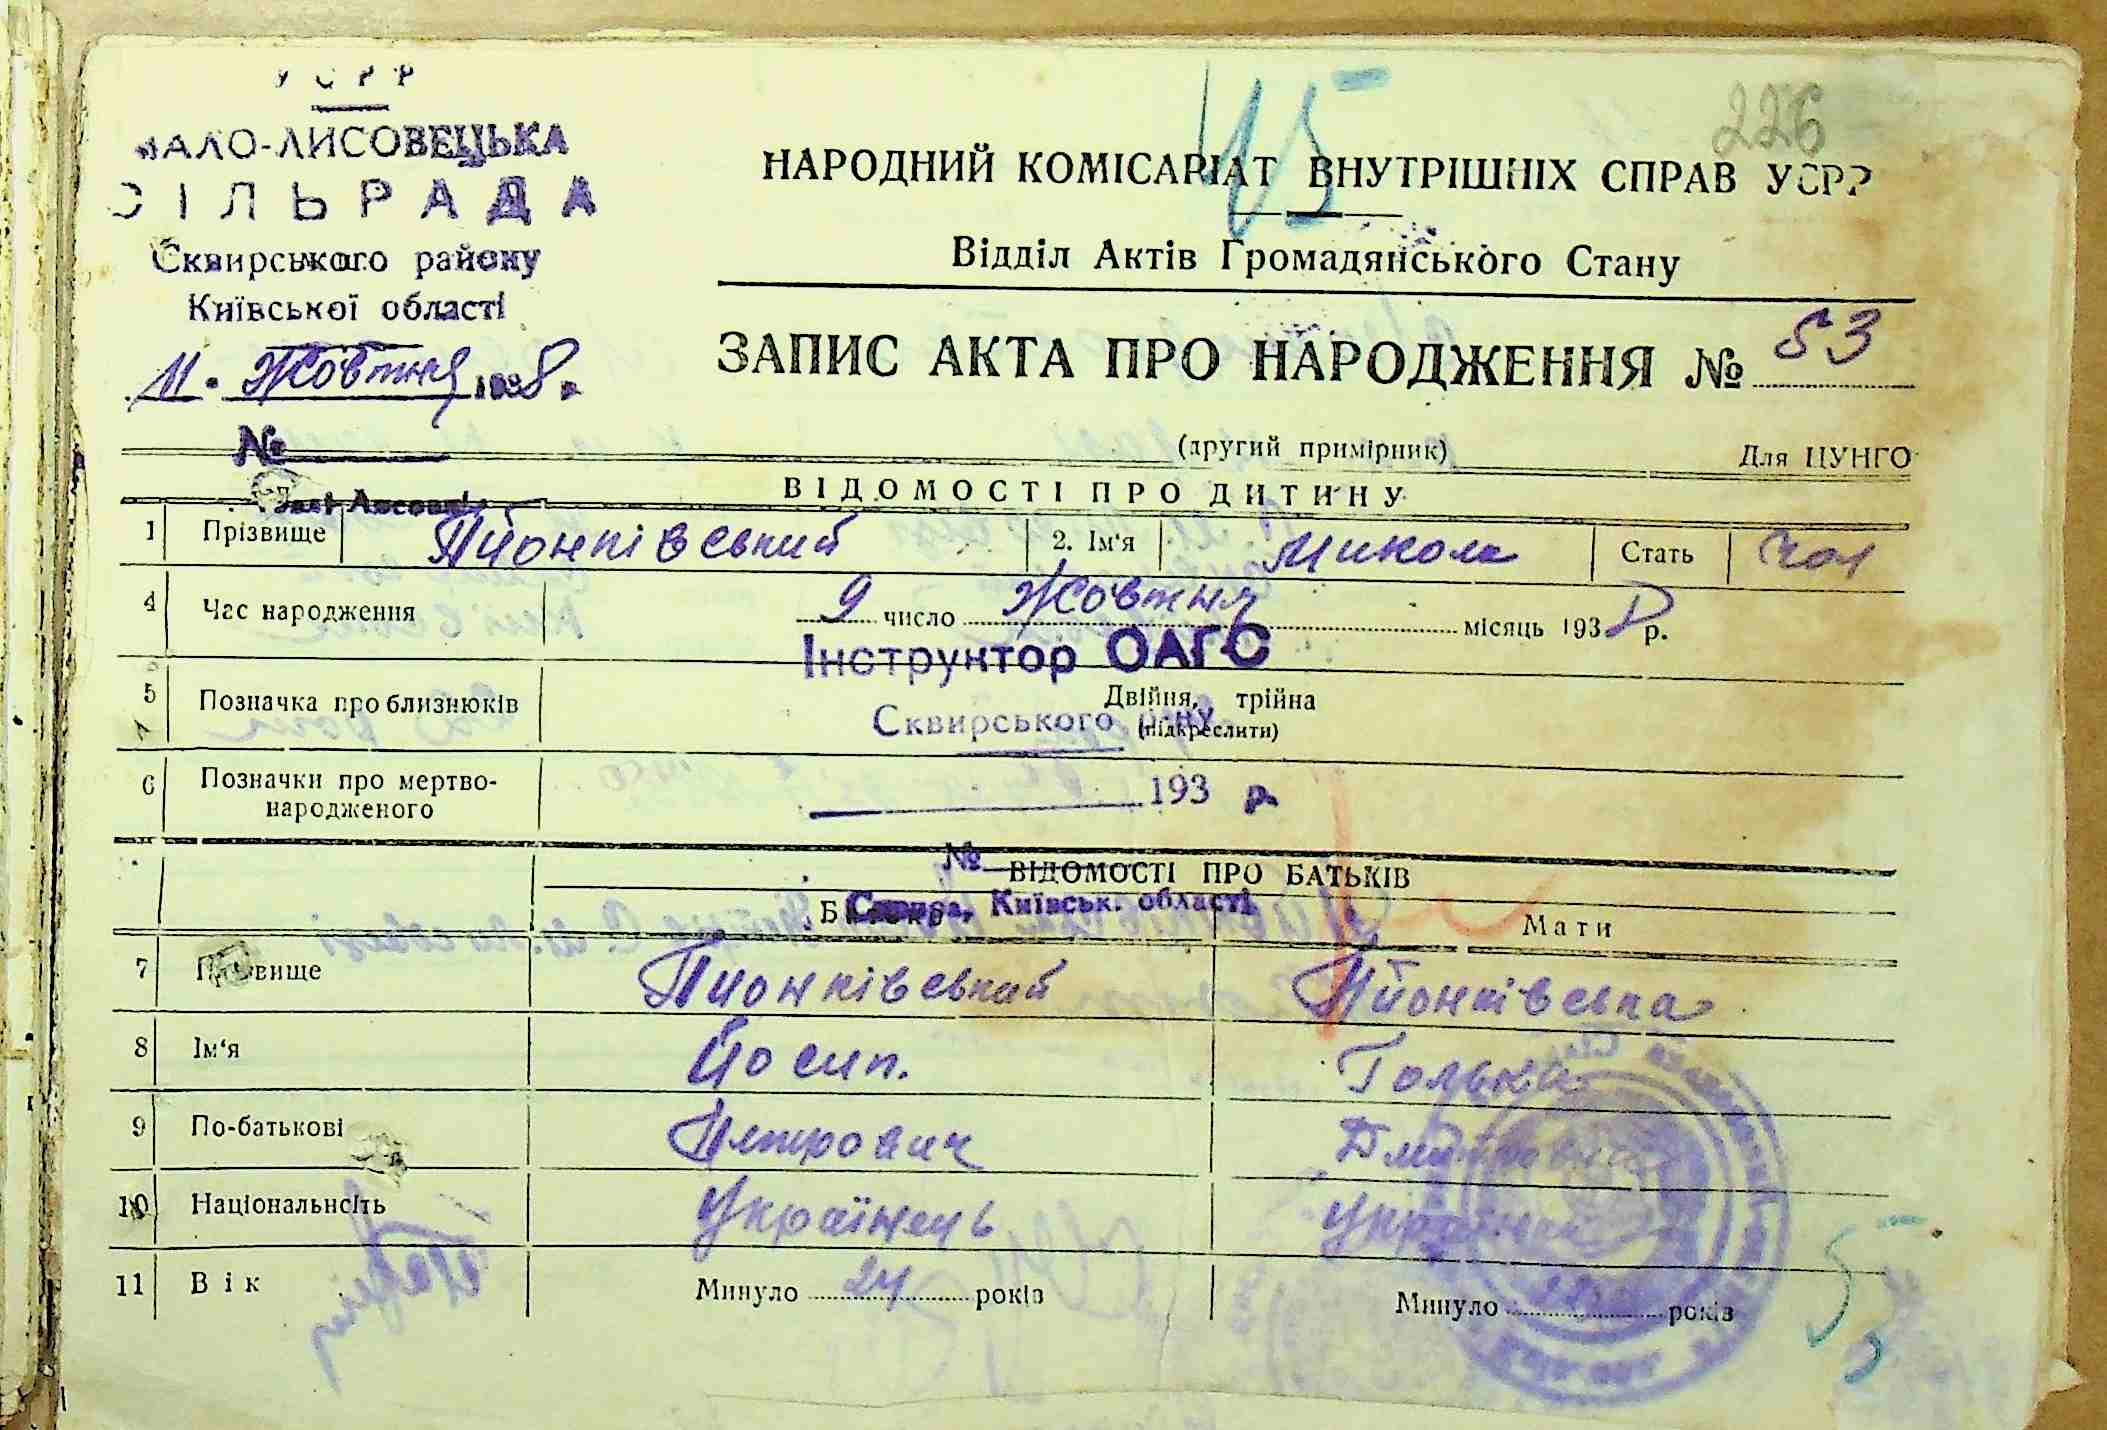 УСРР
МАЛО-ЛИСОВЕЦЬКА
СІЛЬРАДА
Сквирського району
Київської області
11. Жовтня 1938 р.
№
Малі Лисовці
45
226
НАРОДНИЙ КОМІСАРІАТ ВНУТРІШНІХ СПРАВ УСРР
Відділ Актів Громадянського Стану
ЗАПИС АКТА ПРО НАРОДЖЕННЯ № 53
(другий примірник) Для ЦУНГО
ВІДОМОСТІ ПРО ДИТИНУ
1 Прізвище Пйонківський 2. Ім'я Микола Стать Чол
4 Час народження 9 число Жовтня місяць 1938 р.
Інструктор ОАГС
5 Позначка про близнюків Двійня, трійна
Сквирського р-ну (підкреслити)
6 Позначки про мертво-
народженого
193 р.
№ ВІДОМОСТІ ПРО БАТЬКІВ
Сквира, Київськ. області
Батько Мати
7 Прізвище Пионківський Пйонківська
8 Ім'я Йосип. Голька
9 По-батькові Петрович Дмитровна
10 Національність Українець Українка
11 Вік Минуло 24 років Минуло років
53